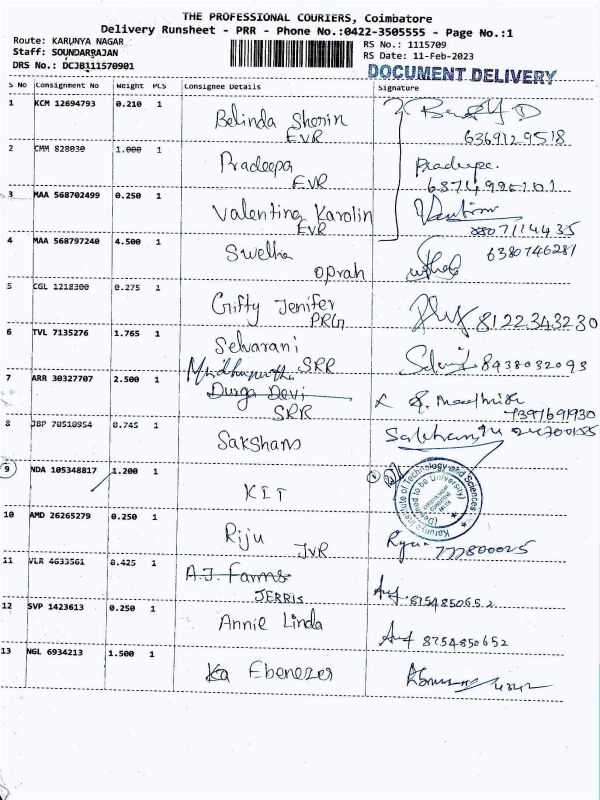 THE PROFESSIONAL COURIERS, Coimbatore
Delivery Runsheet - PRR - Phone No.:0422-3505555 - Page No.:1
Route: KARUNYA NAGAR
Staff: SOUNDARRAJAN
DRS No.: DCJB111570901
RS No.: 1115709
RS Date: 11-Feb-2023
DOCUMENT DELIVERY
S No Consignment No Weight PCS Consignee Details Signature
1 KCM 12694793 0.210 1
Belinda Sharin
EVR
6369129518
2 CMM 828030 1.000 1
Pradeepa Pradeepa.
EVR
3 MAA 568702499 0.250 1
Valentina Karolin
EVR
8807114435
4 MAA 568797240 4.500 1
Swetha 6380746281
Oprah
5 CGL 1218300 0.275 1
Gifty Jenifer
PRG
8122343230
6 TVL 7135276 1.765 1
Selvarani
SRR 8438032093
7 ARR 30327707 2.500 1
Durga Devi
SRR
7397691930
8 JBP 70510954 0.745 1
Saksham
9 NDA 105348817 1.200 1
KIT
Karunya Institute of Technology and Sciences
(Deemed to be University)
10 AMD 26265279 0.250 1
Riju
JVR
777800025
11 VLR 4633561 0.425 1
A.J Farms
JERRIS
8754850652
12 SVP 1423613 0.250 1
Annie Linda
8754850652
13 NGL 6934213 1.500 1
Ebenezer